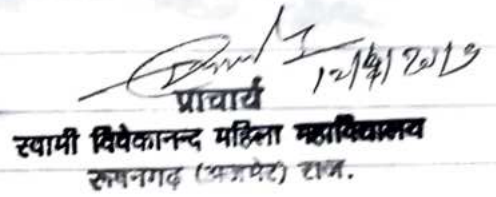 12/4/2013
प्राचार्य
स्वामी विवेकानन्द महिला महाविद्यालय
रूपनगढ़ (अजमेर) राज.